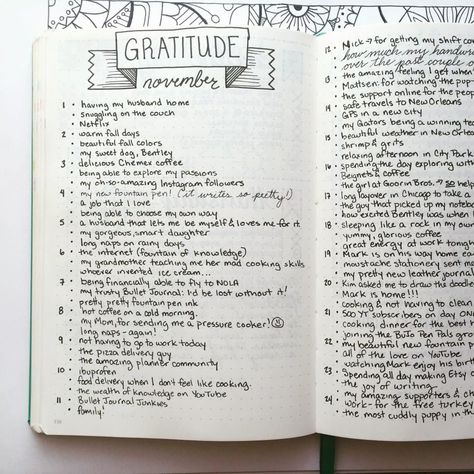 GRATITUDE
november
1 • having my husband home
• snuggling on the couch
• Netflix
2 • warm fall days
• beautiful fall colors
• my sweet dog, Bentley
3 • delicious Chemex coffee
• being able to explore my passions
• my oh-so-amazing Instagram followers
4 • my new fountain pen! (it writes so pretty!)
• a job that I love
• being able to choose my own way
5 • a husband that lets me be myself & loves me for it.
• my gorgeous & smart daughter
• long naps on rainy days
6 • the internet (fountain of knowledge)
• my grandmother teaching her mad cooking skills
• whoever invented ice cream...
7 • being financially able to fly to NOLA
• my trusty Bullet Journal: I'd be lost without it!
• pretty pretty fountain pen ink
8 • hot coffee on a cold morning.
• my Mom, for sending me a pressure cooker!
• long naps - again!
9 • not having to go to work today
• the pizza delivery guy
• the amazing planner community
10 • ibuprofen
• food delivery when I don't feel like cooking.
• the wealth of knowledge on YouTube
11 • Bullet Journal Junkies
• family!
12 • Nick → for getting my shift co
• how much my handwri
over the past couple o
13 • the amazing feeling I get when
• Mattsen: for watching the pup
• the support online for the peop
14 • safe travels to New Orleans
• GPS in a new city
• my Gators being a winning te
15 • beautiful weather in New Orlea
• shrimp & grits
• relaxing afternoon in City Park
16 • spending the day exploring with
• Beignets & coffee
• the girl at Goorin Bros. →
17 • long layover in Chicago to take a
• the guy that picked up my notebo
• how excited Bentley was when
18 • sleeping like a rock in my own
• yummy, glorious coffee
• great energy at work tonigh
19 • Mark is on his way home
• moustache stationery sent m
• my pretty new leather journal
20 • Kim asked me to draw the doodle
• Mark is home!!!
• cooking & not having to clean
21 • 500 YT subscribers on day ON
• cooking dinner for the best
• joining the BuJo Pen Pals gro
22 • my beautiful new fountain p
• all of the love on YouTube
• watching Mark enjoy his birt
23 • Spending all day making Etsy
• the joy of writing
• my amazing supporters & ch
24 • work - for the free turkey
• the most cuddly puppy in th